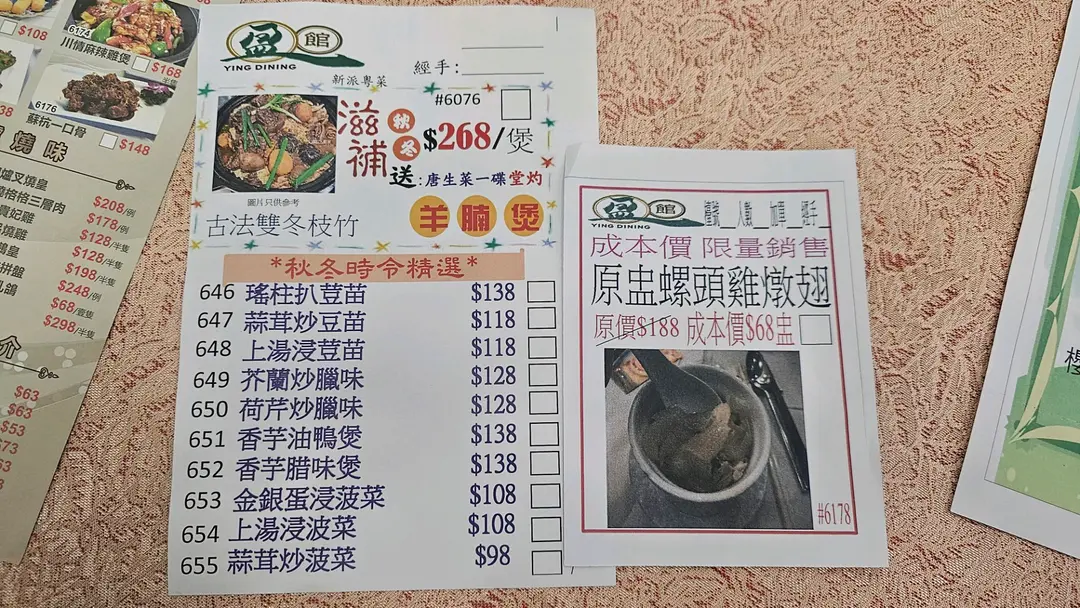 $108
6174
川情麻辣雞煲
$168
/半隻
6176
蘇抗一口骨
$148
燒味
爐叉燒皇
$208/例
格格三層肉
$178/例
貴妃雞
$128/半隻
$128/半隻
拼盤
$198/例
乳鴿
$248/例
$68/壹隻
$298/半隻
介
$63
$63
$53
盈館
YING DINING
新派粵菜
經手:
#6076
滋補
秋冬
$268/煲
送:唐生菜一碟堂灼
圖片只供參考
古法雙冬枝竹
羊腩煲
*秋冬時令精選*
646 瑤柱扒荳苗 $138
647 蒜茸炒豆苗 $118
648 上湯浸荳苗 $118
649 芥蘭炒臘味 $128
650 荷芹炒臘味 $128
651 香芋油鴨煲 $138
652 香芋腊味煲 $138
653 金銀蛋浸菠菜 $108
654 上湯浸波菜 $108
655 蒜茸炒菠菜 $98
盈館
YING DINING
檯號 人數 加單 經手
成本價 限量銷售
原盅螺頭雞燉翅
原價$188 成本價$68盅
#6178